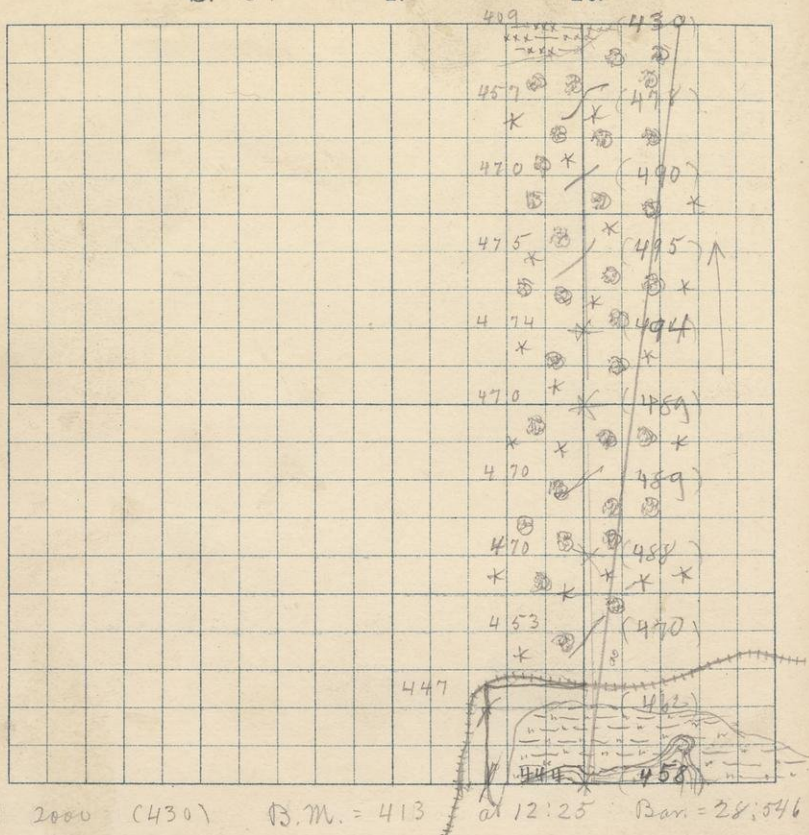 409 (430)
457 (478)
470 (490)
475 (495)
474 (494)
470 (489)
470 489)
470 (488)
453 (470)
447
(462)
444 (458
2000 (430) B.M. = 413 at 12:25 Bar. = 28;546